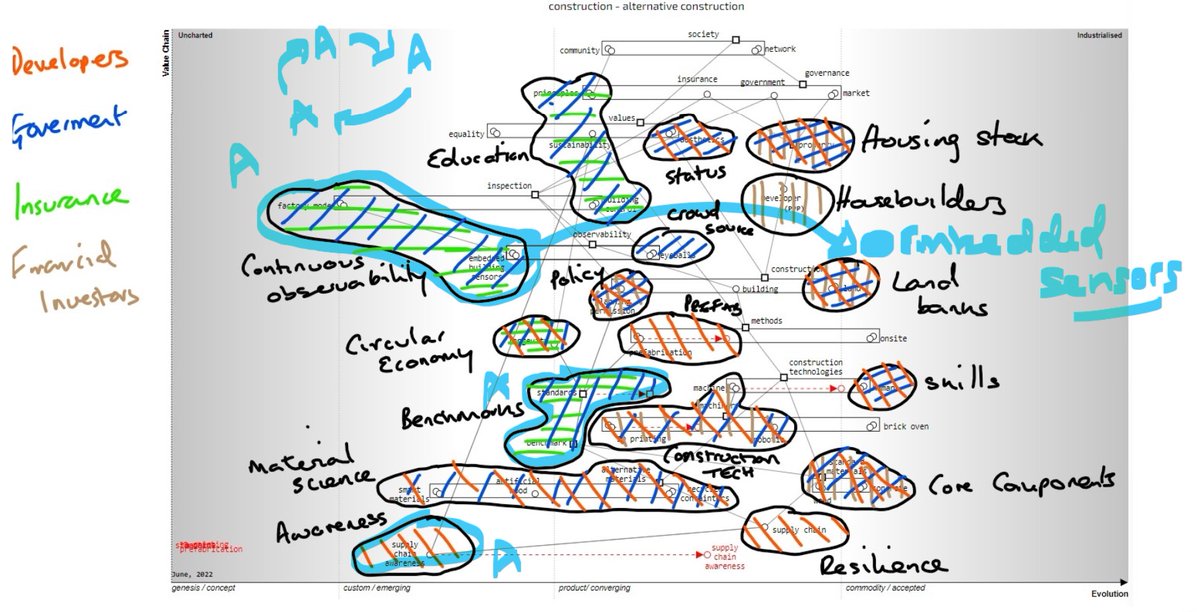 construction - alternative construction
Value Chain
Uncharted
Industrialised
Developers
Goverment
Insurance
Financial
Investors
A
A
A
A
society
community
network
insurance
government
governance
market
principles
values
equality
sustainability
Education
status
Housing stock
inspection
factory model
developer
(P2P)
Housebuilders
crowd
source
observability
eyeballs
embedded
building
sensors
Embedded
sensors
Continuous
observability
Policy
construction
building
Land
banks
PREFAB
methods
prefabrication
onsite
Circular
Economy
construction
technologies
A
standards
machine
skills
Benchmarks
benchmark
3D printing
brick oven
Construction
TECH
Material
Science
smart
materials
alternative
materials
Core Components
Awareness
supply
chain
awareness
A
supply
chain
awareness
supply chain
Resilience
prefabrication
June, 2022
genesis / concept
custom / emerging
product / converging
commodity / accepted
Evolution